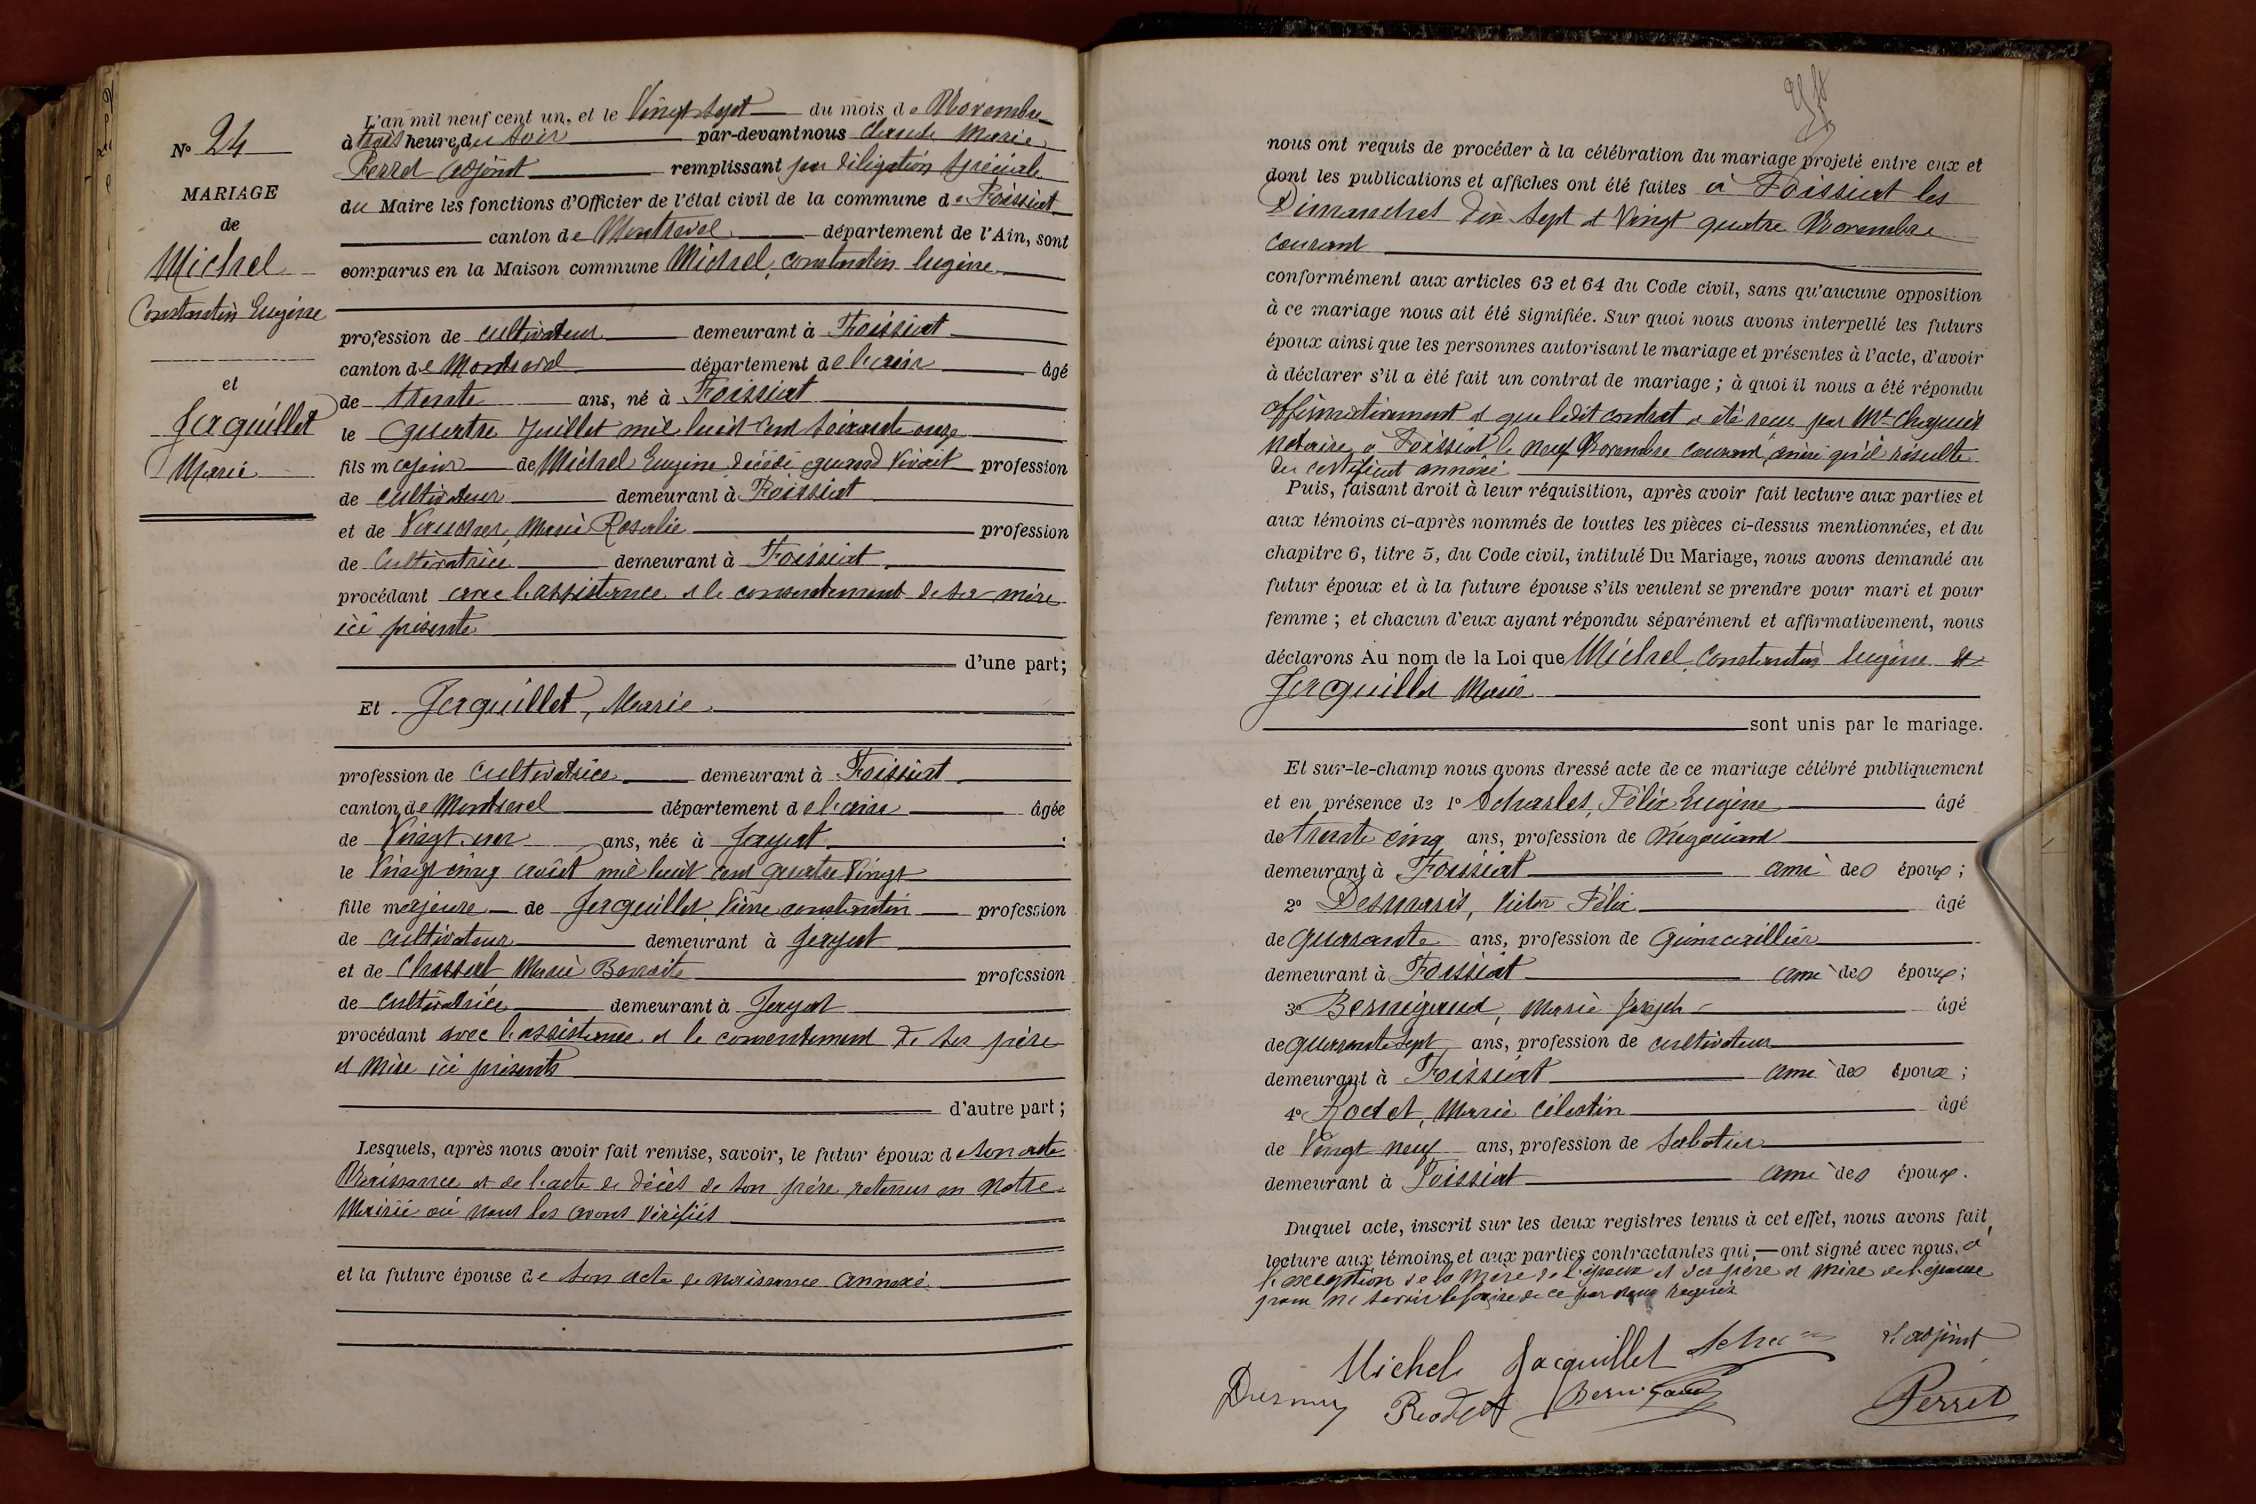 N° 24
MARIAGE
de
Michel
Constantin Eugène
et
Jacquillet
Marie
L'an mil neuf cent un, et le Vingt sept du mois de Novembre
à trois heures du soir par-devant nous Claude Marie
Perret adjoint remplissant par délégation spéciale
du Maire les fonctions d'Officier de l'état civil de la commune de Foissiat
canton de Montrevel département de l'Ain, sont
comparus en la Maison commune Michel, Constantin Eugène
profession de cultivateur demeurant à Foissiat
canton de Montrevel département de l'ain âgé
de trente ans, né à Foissiat
le quatre Juillet mil huit cent soixante onze
fils majeur de Michel Eugène décédé quand vivait profession
de cultivateur demeurant à Foissiat
et de Marie Rosalie profession
de cultivatrice demeurant à Foissiat
procédant avec l'assistance et le consentement de sa mère
ici présente
d'une part;
Et Jacquillet, Marie
profession de cultivatrice demeurant à Foissiat
canton de Montrevel département de l'ain âgée
de Vingt un ans, née à Jayat
le Vingt cinq août mil huit cent quatre Vingt
fille majeure de Jacquillet, constantin profession
de cultivateur demeurant à Jayat
et de Chossat Marie Benoite profession
de cultivatrice demeurant à Jayat
procédant avec l'assistance et le consentement de ses père
et Mère ici présents
d'autre part;
Lesquels, après nous avoir fait remise, savoir, le futur époux de son acte
Naissance et de l'acte de décès de son père retenus en Notre
Mairie où nous les avons vérifiés
et la future épouse de son acte de naissance annexé
nous ont requis de procéder à la célébration du mariage projeté entre eux et
dont les publications et affiches ont été faites à Foissiat les
Dimanches dix sept et Vingt quatre Novembre
courant
conformément aux articles 63 et 64 du Code civil, sans qu'aucune opposition
à ce mariage nous ait été signifiée. Sur quoi nous avons interpellé les futurs
époux ainsi que les personnes autorisant le mariage et présentes à l'acte, d'avoir
à déclarer s'il a été fait un contrat de mariage; à quoi il nous a été répondu
affirmativement et que ledit contrat a été reçu par Me
Notaire à Foissiat le neuf Novembre courant, ainsi qu'il résulte
du certificat annexé
Puis, faisant droit à leur réquisition, après avoir fait lecture aux parties et
aux témoins ci-après nommés de toutes les pièces ci-dessus mentionnées, et du
chapitre 6, titre 5, du Code civil, intitulé Du Mariage, nous avons demandé au
futur époux et à la future épouse s'ils veulent se prendre pour mari et pour
femme; et chacun d'eux ayant répondu séparément et affirmativement, nous
déclarons Au nom de la Loi que Michel, Constantin Eugène et
Jacquillet Marie
sont unis par le mariage.
Et sur-le-champ nous avons dressé acte de ce mariage célébré publiquement
et en présence de 1° Félix Eugène âgé
de trente cinq ans, profession de Négociant
demeurant à Foissiat ami des époux;
2° Desmaris, Victor Félix âgé
de quarante ans, profession de Quincaillier
demeurant à Foissiat ami des époux;
3° Bernigaud, Marie Joseph âgé
de quarante sept ans, profession de cultivateur
demeurant à Foissiat ami des époux;
4° Rodet, Marie Célestin âgé
de Vingt neuf ans, profession de sabotier
demeurant à Foissiat ami des époux.
Duquel acte, inscrit sur les deux registres tenus à cet effet, nous avons fait
lecture aux témoins et aux parties contractantes qui, ont signé avec nous, à
l'exception de la Mère de l'époux et des père et Mère de l'épouse
pour ne savoir le faire de ce par nous requis
Michel Jacquillet L'adjoint
Rodet Bernigaud Perret